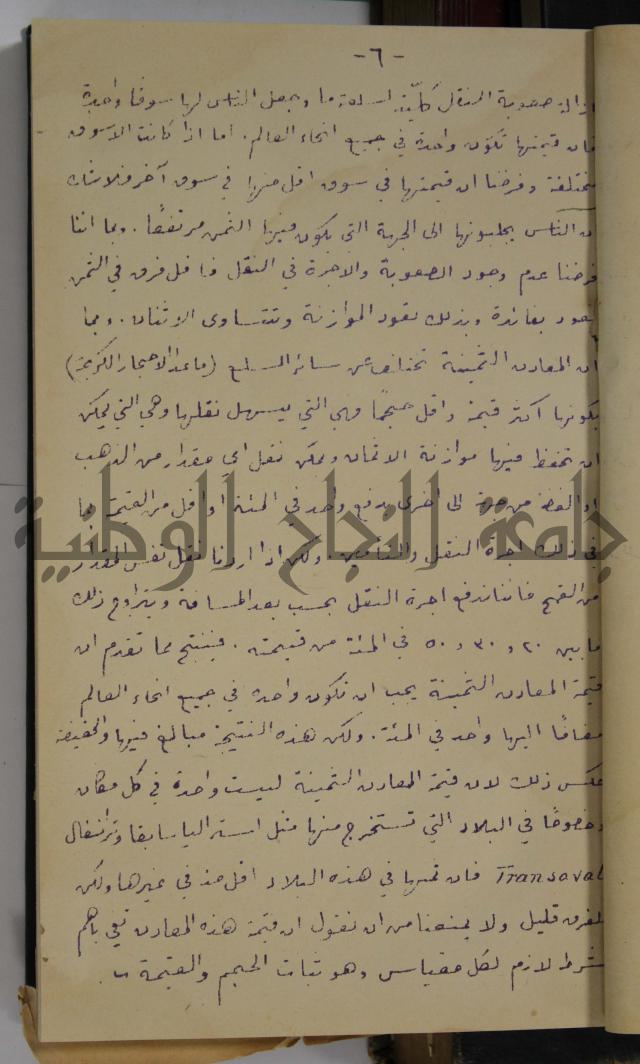 -٦-
ازالة صعوبة النقل كلية لسلعة ما وجعل الناس لها سوقا واحدة
فان قيمتها تكون واحدة في جميع انحاء العالم. اما اذا كانت الاسواق
مختلفة وفرضنا ان قيمتها في سوق اقل منها في سوق آخر فلا شك
ان الناس يجلبونها الى الجهة التي يكون فيها الثمن مرتفعًا. وبما اننا
فرضنا عدم وجود الصعوبة والاجرة في النقل فاقل فرق في الثمن
يعود بفائدة وبذلك تعود الموازنة وتتساوى الاثمان. وبما
ان المعادن الثمينة تختلف عن سائر السلع (ما عدا الاحجار الكريمة)
بكونها اكثر قيمة واقل حجمًا فهي التي يسهل نقلها وهي التي يمكن
ان تحفظ فيها موازنة الاثمان ويمكن نقل اي مقدار من الذهب
او الفضة من جهة الى اخرى بدفع واحد في المئة او اقل من القيمة بما
في ذلك اجرة النقل والتأمين. ولكن اذا اردنا نقل نفس المقدار
من القمح فاننا ندفع اجرة النقل بحسب بعد المسافة ويتراوح ذلك
ما بين ٢٠ و ٣٠ و ٥٠ في المئة من قيمته. فينتج مما تقدم ان
قيمة المعادن الثمينة يجب ان تكون واحدة في جميع انحاء العالم
مضافًا اليها واحد في المئة. ولكن هذه النتيجة مبالغ فيها والحقيقة
عكس ذلك لان قيمة المعادن الثمينة ليست واحدة في كل مكان
وخصوصًا في البلاد التي تستخرج منها مثل استراليا سابقا وترانسفال
Transaval فان ثمنها في هذه البلاد اقل منه في غيرها ولكن
الفرق قليل ولا يمنعنا من ان نقول ان قيمة هذه المعادن تفي باهم
شرط لازم لكل مقياس وهو ثبات الحجم والقيمة
جامعة النجاح الوطنية